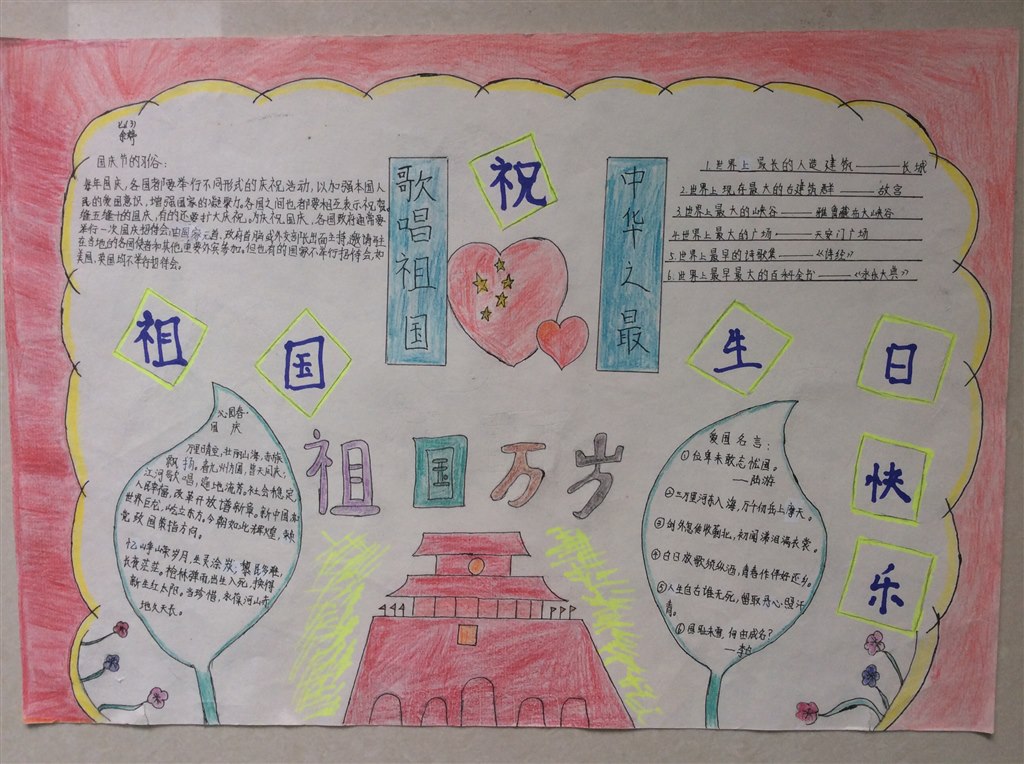 余婷
国庆节的习俗：
每年国庆，各国都要举行不同形式的庆祝活动，以加强本国人
民的爱国意识，增强国家的凝聚力。各国之间也都要相互表示祝贺。
逢五逢十的国庆，有的还要扩大庆祝。为庆祝国庆，各国政府通常要
举行一次国庆招待会，由国家元首、政府首脑或外交部长出面主持，邀请驻
在当地的各国使者和其他重要外宾参加。但也有的国家不举行招待会，如
美国、英国均不举行招待会。
歌唱祖国
祝
中华之最
1.世界上最长的人造建筑——长城
2.世界上现存最大的古建筑群——故宫
3.世界上最大的峡谷——雅鲁藏布大峡谷
4.世界上最大的广场——天安门广场
5.世界上最早的诗歌集——《诗经》
6.世界上最早最大的百科全书——《永乐大典》
祖
国
生
日
快
乐
祖国万岁
沁园春·
国庆
万里晴空，壮丽山海，赤旗
飘扬。看九州方圆，普天同庆；
江河歌唱，遍地流芳。社会稳定，
人民幸福，改革开放谱新章。新中国如
世界巨龙，屹立东方。今朝如此辉煌，
党政国策指方向。
忆峥嵘岁月，生灵涂炭，黎民多难，
长夜茫茫。枪林弹雨出生入死，换得
新生红太阳。当珍惜，永葆河山赤
地久天长。
爱国名言：
①位卑未敢忘忧国。
——陆游
②三万里河东入海，五千仞岳上摩天。
③剑外忽传收蓟北，初闻涕泪满衣裳。
④白日放歌须纵酒，青春作伴好还乡。
⑤人生自古谁无死，留取丹心照汗
青。
⑥国耻未雪，何由成名？
——李白